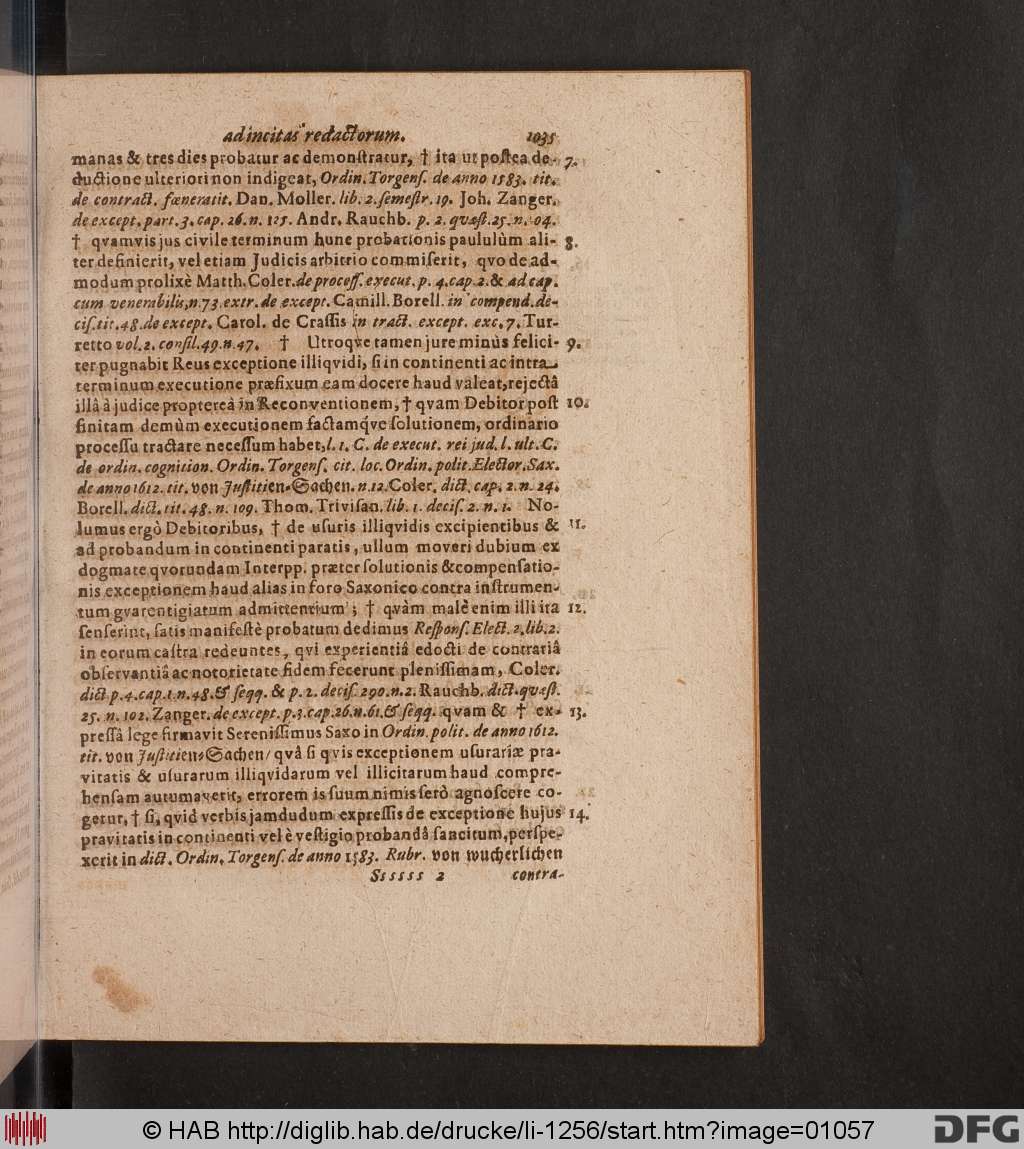 ad incitas redactorum. 1035
manas & tres dies probatur ac demonſtratur, † ita ut poſtea de- 7.
ductione ulteriori non indigeat, Ordin. Torgenſ. de anno 1583. tit.
de contract. fœneratit. Dan. Moller. lib. 2. ſemeſtr. 19. Joh. Zanger.
de except. part. 3. cap. 26. n. 125. Andr. Rauchb. p. 2. quæſt. 25. n. 04.
† qvamvis jus civile terminum hunc probationis paululùm ali- 8.
ter definierit, vel etiam Judicis arbitrio commiſerit, qvo de ad-
modum prolixè Matth. Coler. de proceſſ. execut. p. 4. cap. 2. & ad cap.
cum venerabilis, n. 73. extr. de except. Camill. Borell. in compend. de-
ciſ. tit. 48. de except. Carol. de Craſſis in tract. except. exc. 7. Tur-
retto vol. 2. conſil. 49. n. 47. † Utroqve tamen jure minùs felici- 9.
ter pugnabit Reus exceptione illiqvidi, ſi in continenti ac intra
terminum executione præfixum eam docere haud valeat, rejectâ
illâ à judice proptereà in Reconventionem, † qvam Debitor poſt 10.
finitam demùm executionem factamq́ve ſolutionem, ordinario
proceſſu tractare neceſſum habet, l. 1. C. de execut. rei jud. l. ult. C.
de ordin. cognition. Ordin. Torgenſ. cit. loc. Ordin. polit. Elector. Sax.
de anno 1612. tit. von Juſtitien-Sachen. n. 12. Coler. dict. cap. 2. n. 24.
Borell. dict. tit. 48. n. 109. Thom. Triviſan. lib. 1. deciſ. 2. n. 1. No-
lumus ergò Debitoribus, † de uſuris illiqvidis excipientibus & 11.
ad probandum in continenti paratis, ullum moveri dubium ex
dogmate qvorundam Interpp. præter ſolutionis & compenſatio-
nis exceptionem haud alias in foro Saxonico contra inſtrumen-
tum gvarentigiatum admittentium; † qvàm malè enim illi ita 12.
ſenſerint, ſatis manifeſtè probatum dedimus Reſponſ. Elect. 2. lib. 2.
in eorum caſtra redeuntes, qvi experientiâ edocti de contrariâ
obſervantiâ ac notorietate fidem fecerunt pleniſſimam, Coler.
dict. p. 4. cap. 1. n. 48. & ſeqq. & p. 2. deciſ. 290. n. 2. Rauchb. dict. qvæſt.
25. n. 102. Zanger. de except. p. 3. cap. 26. n. 61. & ſeqq. qvam & † ex- 13.
preſſâ lege firmavit Sereniſſimus Saxo in Ordin. polit. de anno 1612.
tit. von Juſtitien-Sachen/ qvâ ſi qvis exceptionem uſurariæ pra-
vitatis & uſurarum illiqvidarum vel illicitarum haud compre-
henſam autumaverit, errorem is ſuum nimis ſerò agnoſcere co-
getur, † ſi, qvid verbis jamdudum expreſſis de exceptione hujus 14.
pravitatis in continenti vel è veſtigio probandâ ſancitum, perſpe-
xerit in dict. Ordin. Torgenſ. de anno 1583. Rubr. von wucherlichen
Ssssss 2 contra-
© HAB http://diglib.hab.de/drucke/li-1256/start.htm?image=01057
DFG